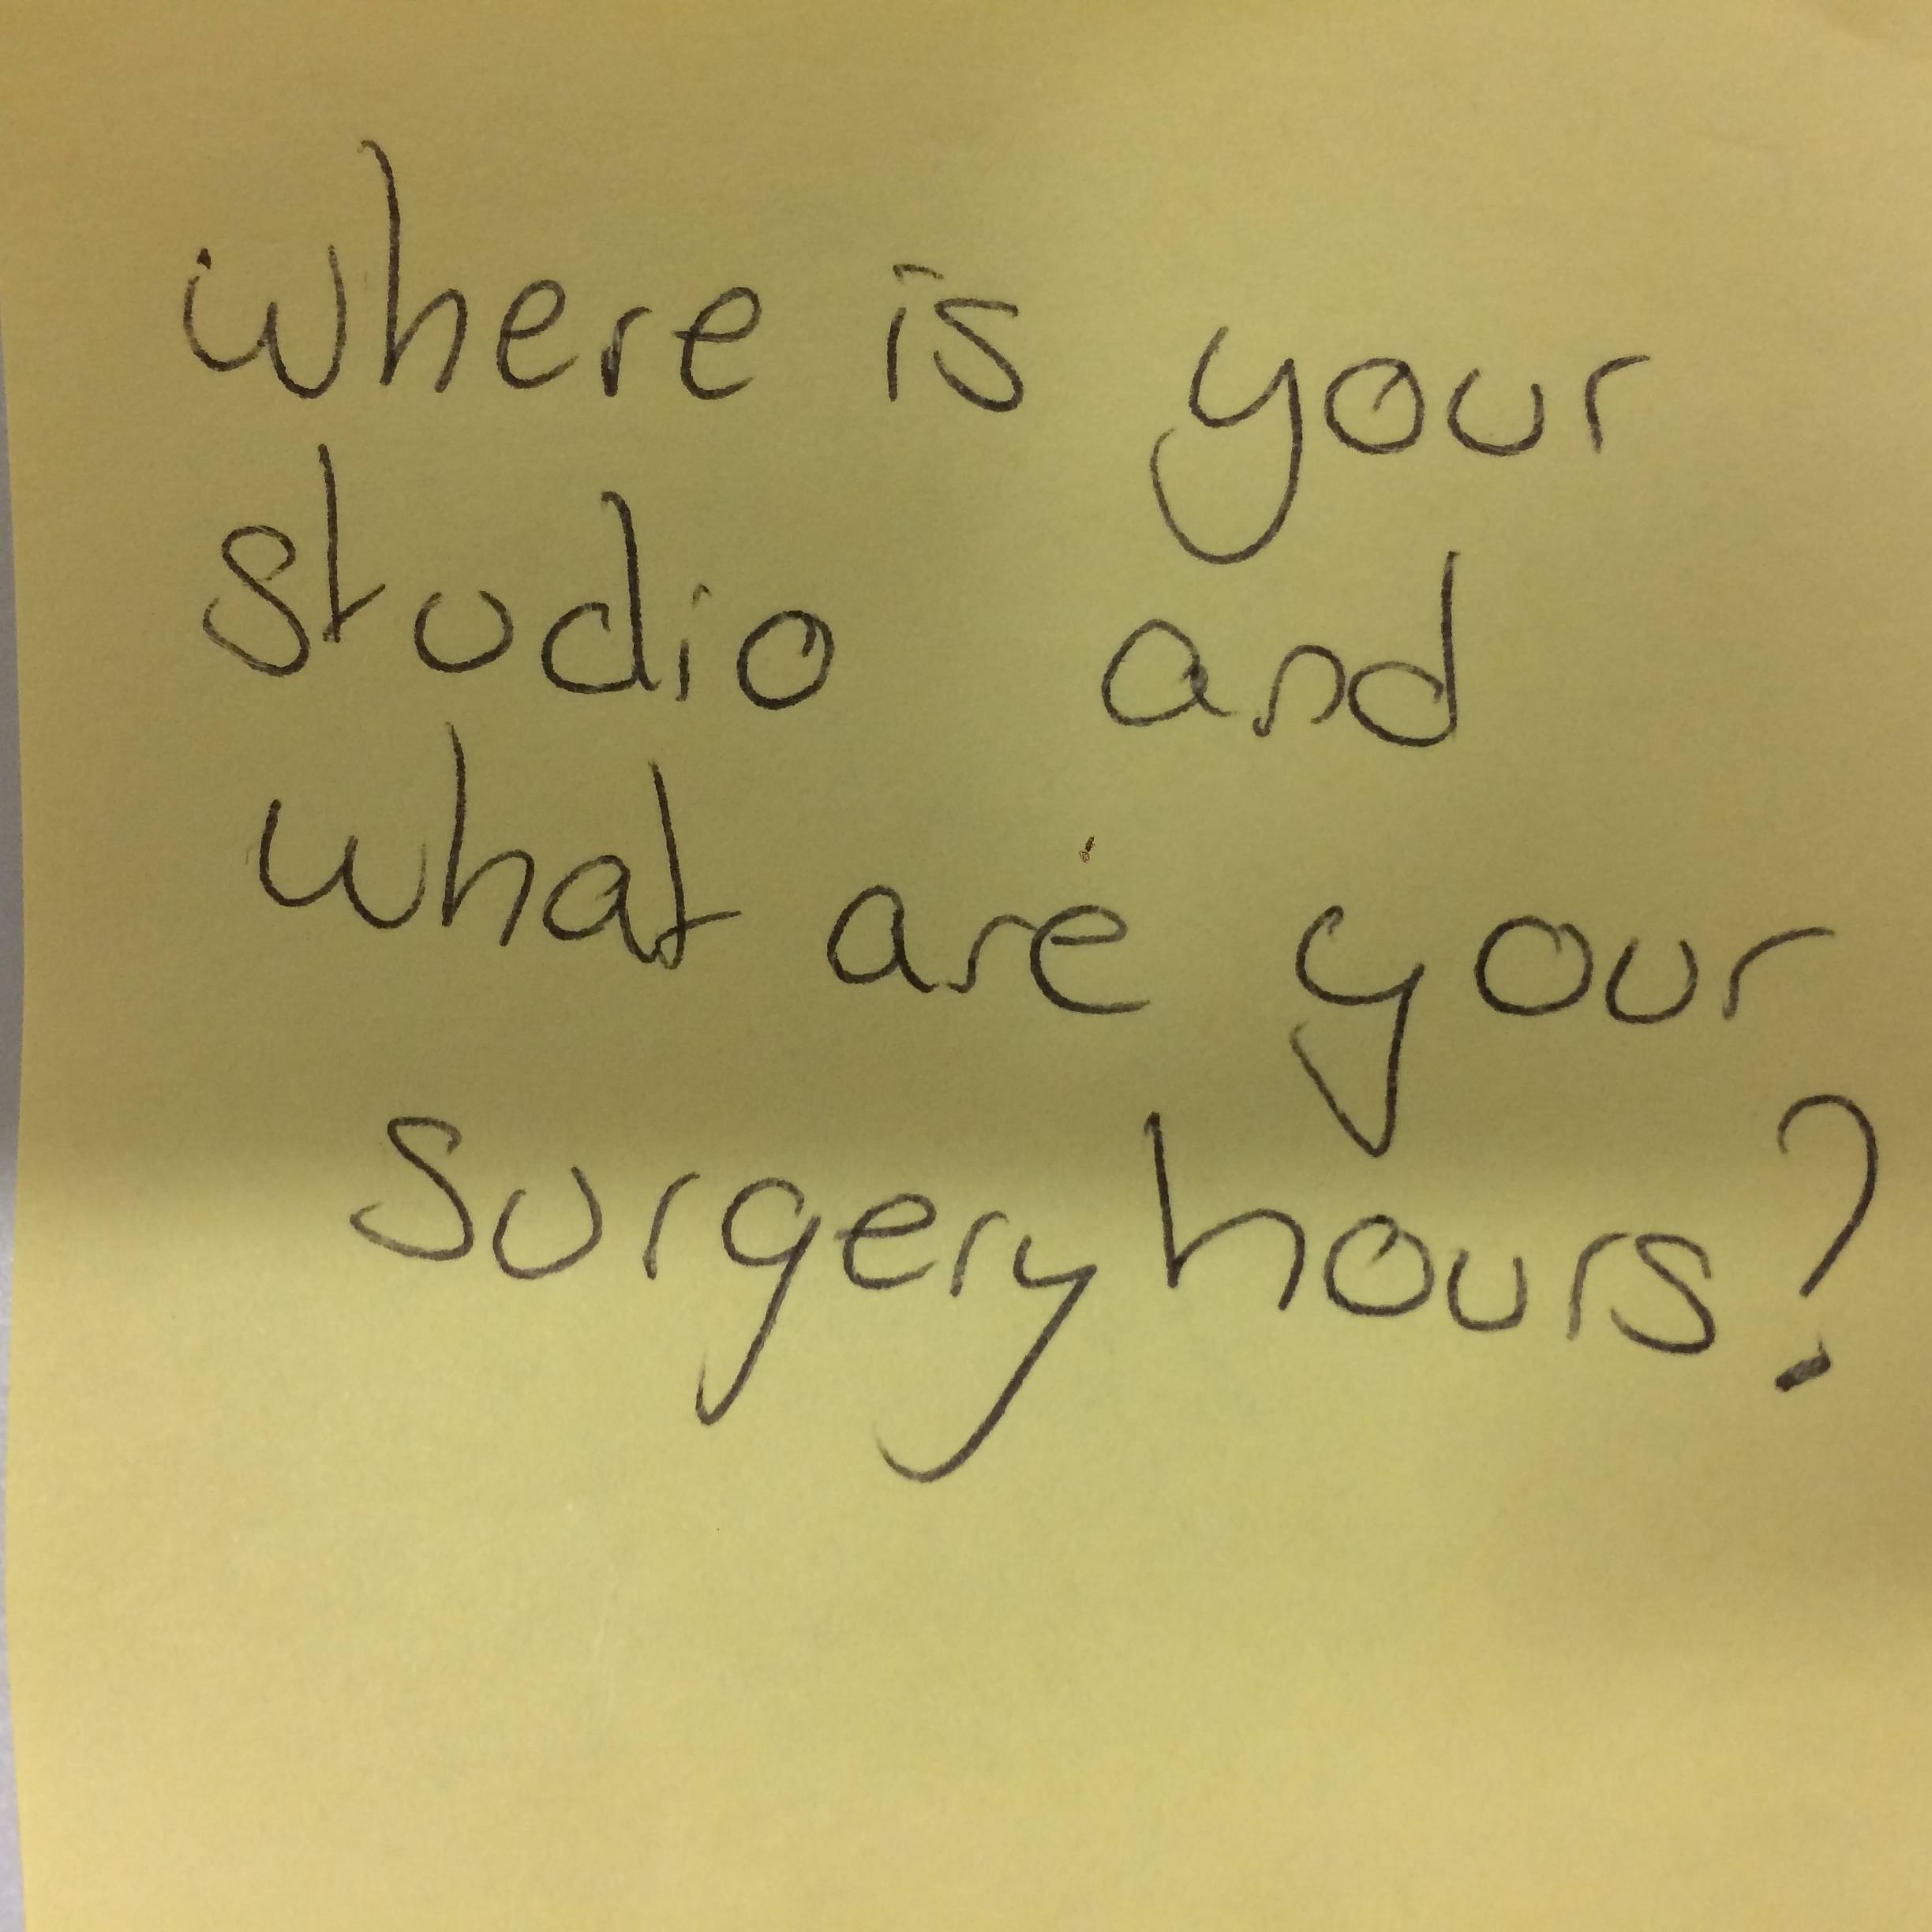 where is your
studio and
what are your
surgery hours?